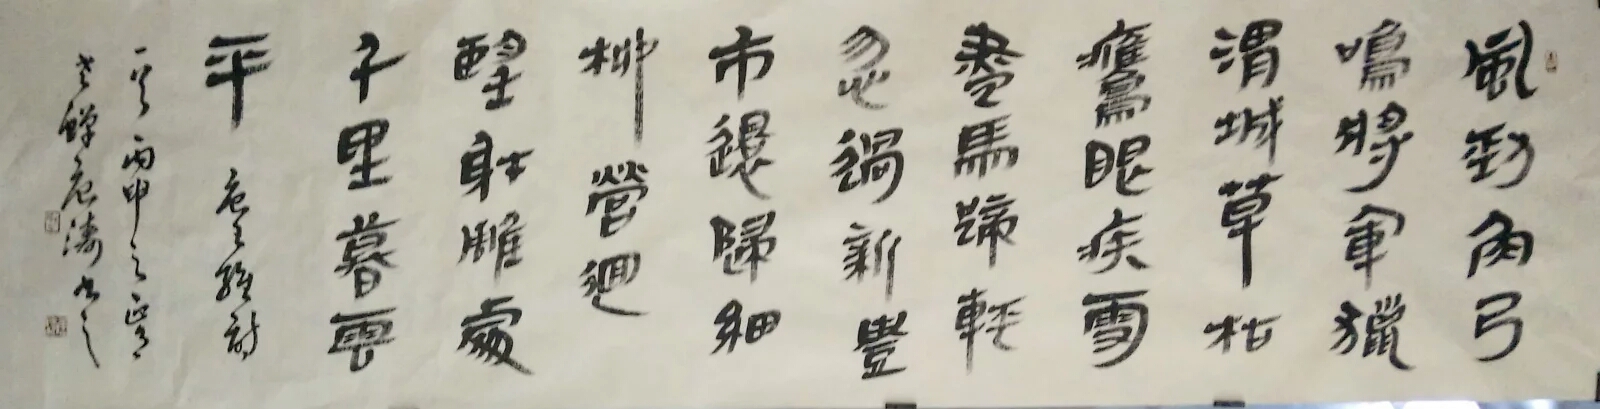 風勁角弓
鳴將軍獵
渭城草枯
鷹眼疾雪
盡馬蹄輕
忽過新豐
市還歸細
柳營迴
望射雕處
千里暮雲
平 唐王維詩
一首丙申之
濤書之